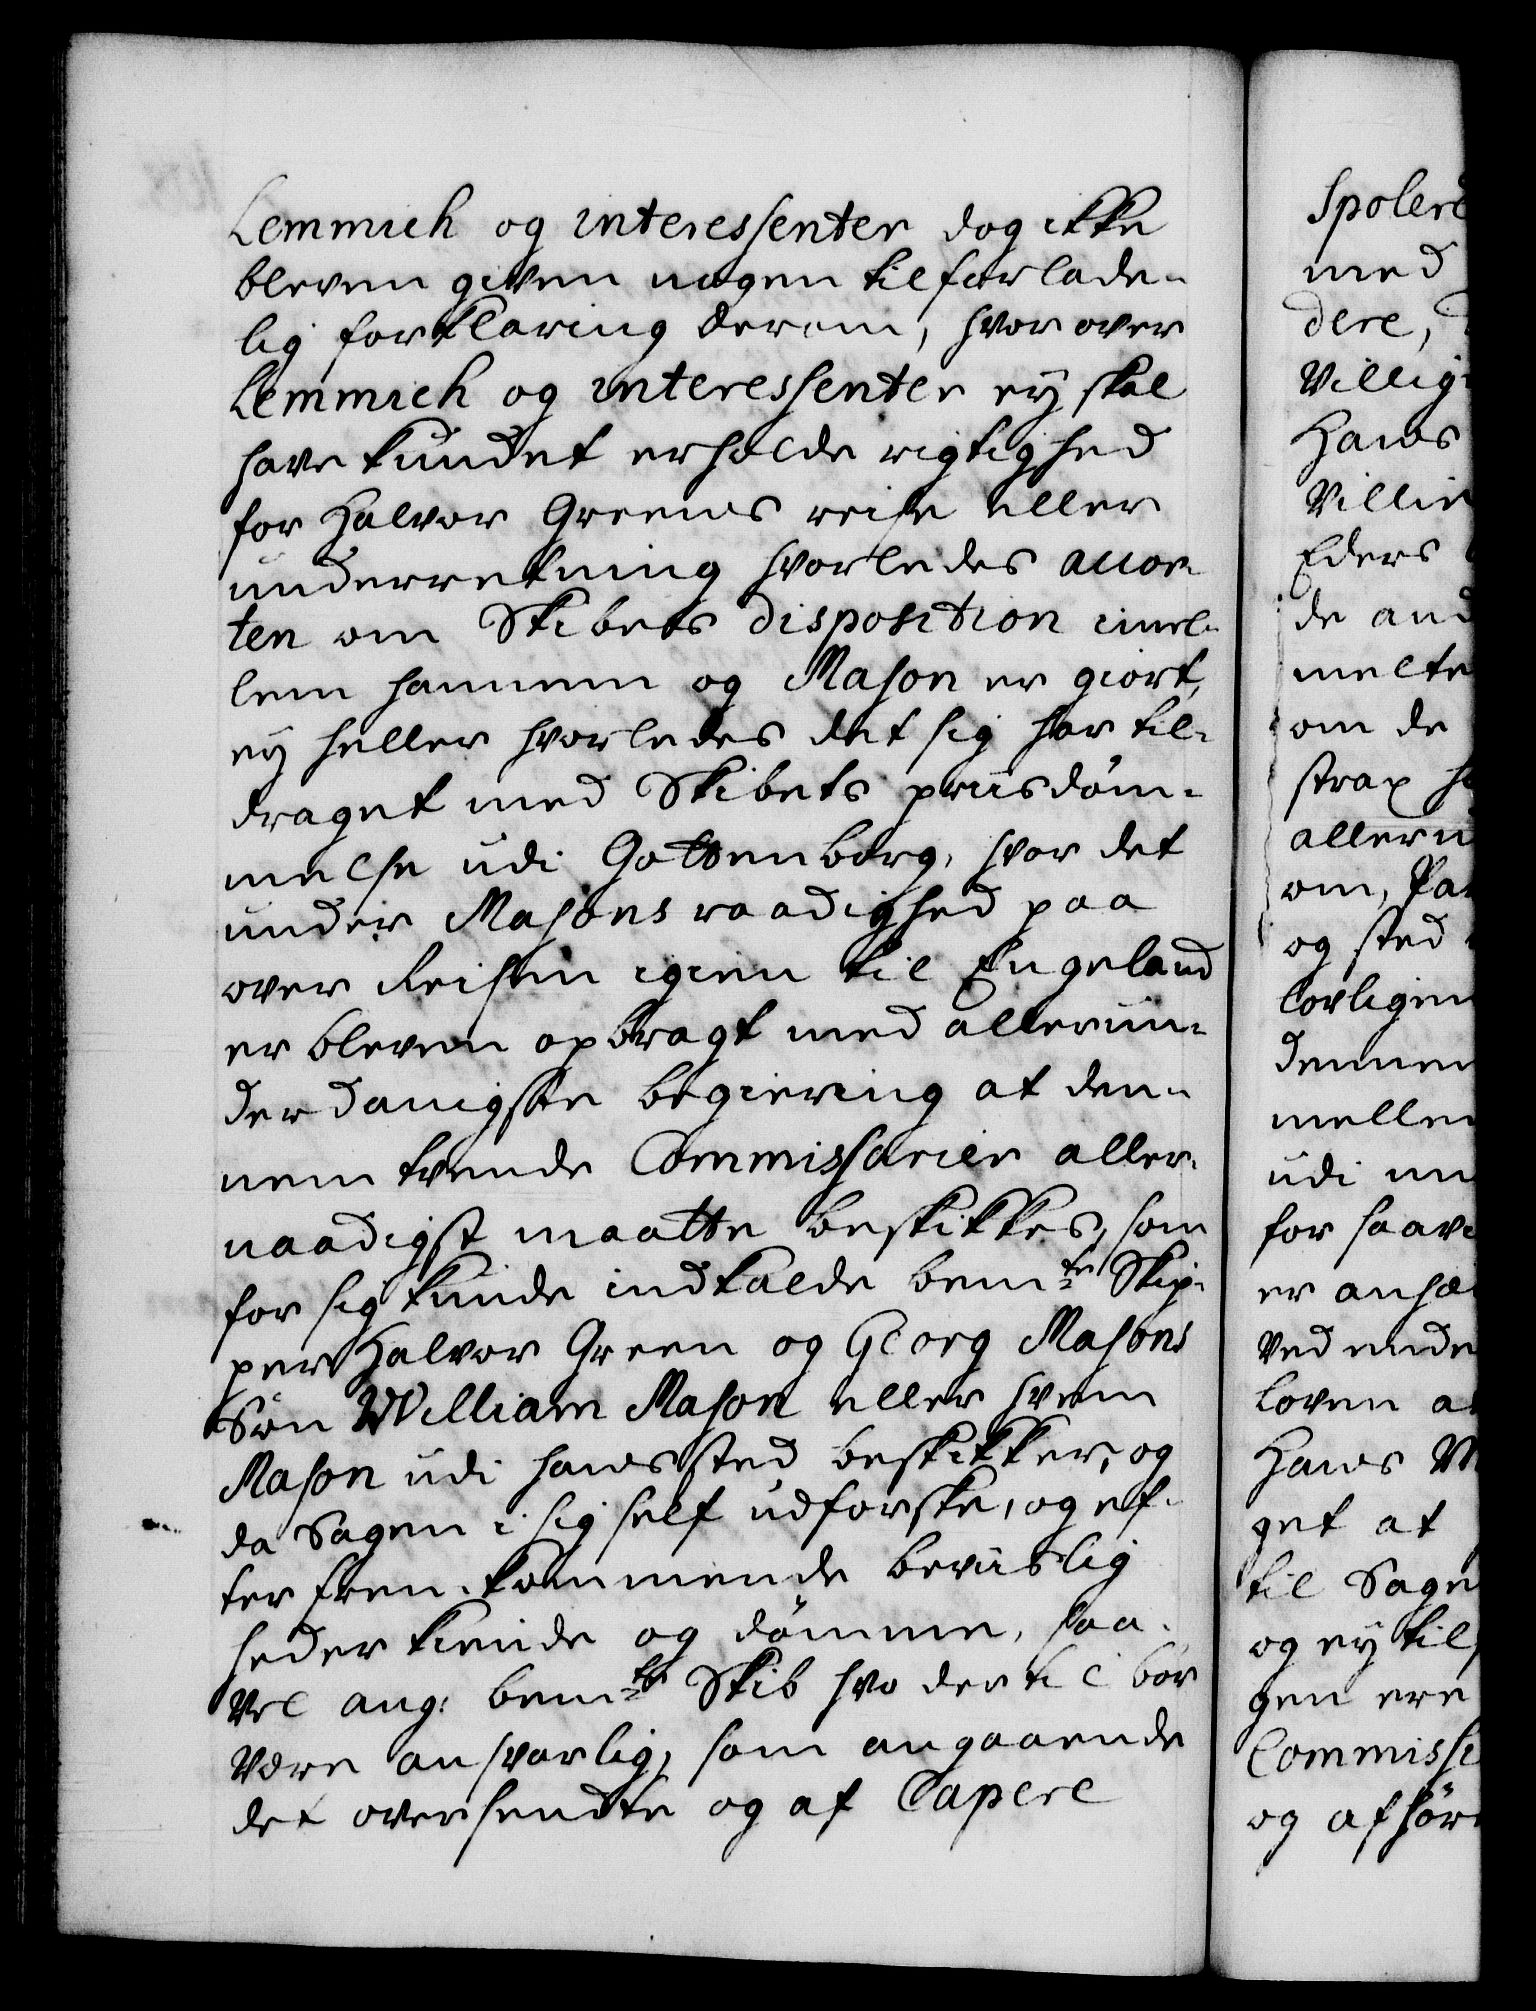 Lemmich og interessenter dog ikke
bleven given nogen tilforlade-
lig forklaring derom, hvor over
Lemmich og interessenter ey skal
have kundet erholde rigtighed
for Halvor Greens reise eller
underretning hvorledes accor-
ten om Skibets disposition imel-
lem hannem og Mason er giort,
ey heller hvorledes det sig har til-
draget med Skibets priisdøm-
melse udi Gottenborg, hvor det
under Masons raadighed paa
over Reisen igien til Engeland
er bleven opbragt med allerun-
derdanigste begiering at den-
nem tvende Commissarier aller-
naadigst maatte beskikkes, som
for sig kunde indkalde bemte Skip-
per Halvor Green og Georg Masons
Søn William Mason eller hvem
Mason udi hans sted beskikker, og
da Sagen i sig self udforske, og ef-
ter frem-kommende beviislig
heder kiende og dømme, saa-
vel ang: bemte Skib hvo dertil bør
være ansvarlig, som angaaende
det oversendte og af Capere
Spolere
med
dere,
Villig
Hans
Villie
Eders
de and
melte
om de
strax
alleru
om, Pa
og sted
lovligen
dennem
mellem
udi
for saav
er
ved
loven a
Hans M
get at
til Sage
og ey til
gen ere
Commissi
og afhør